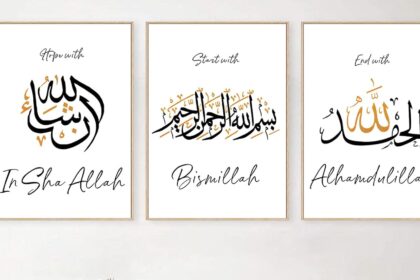 Hope with
إن شاء الله
In Sha Allah
Start with
بسم الله الرحمن الرحيم
Bismillah
End with
الحمد لله
Alhamdulilla